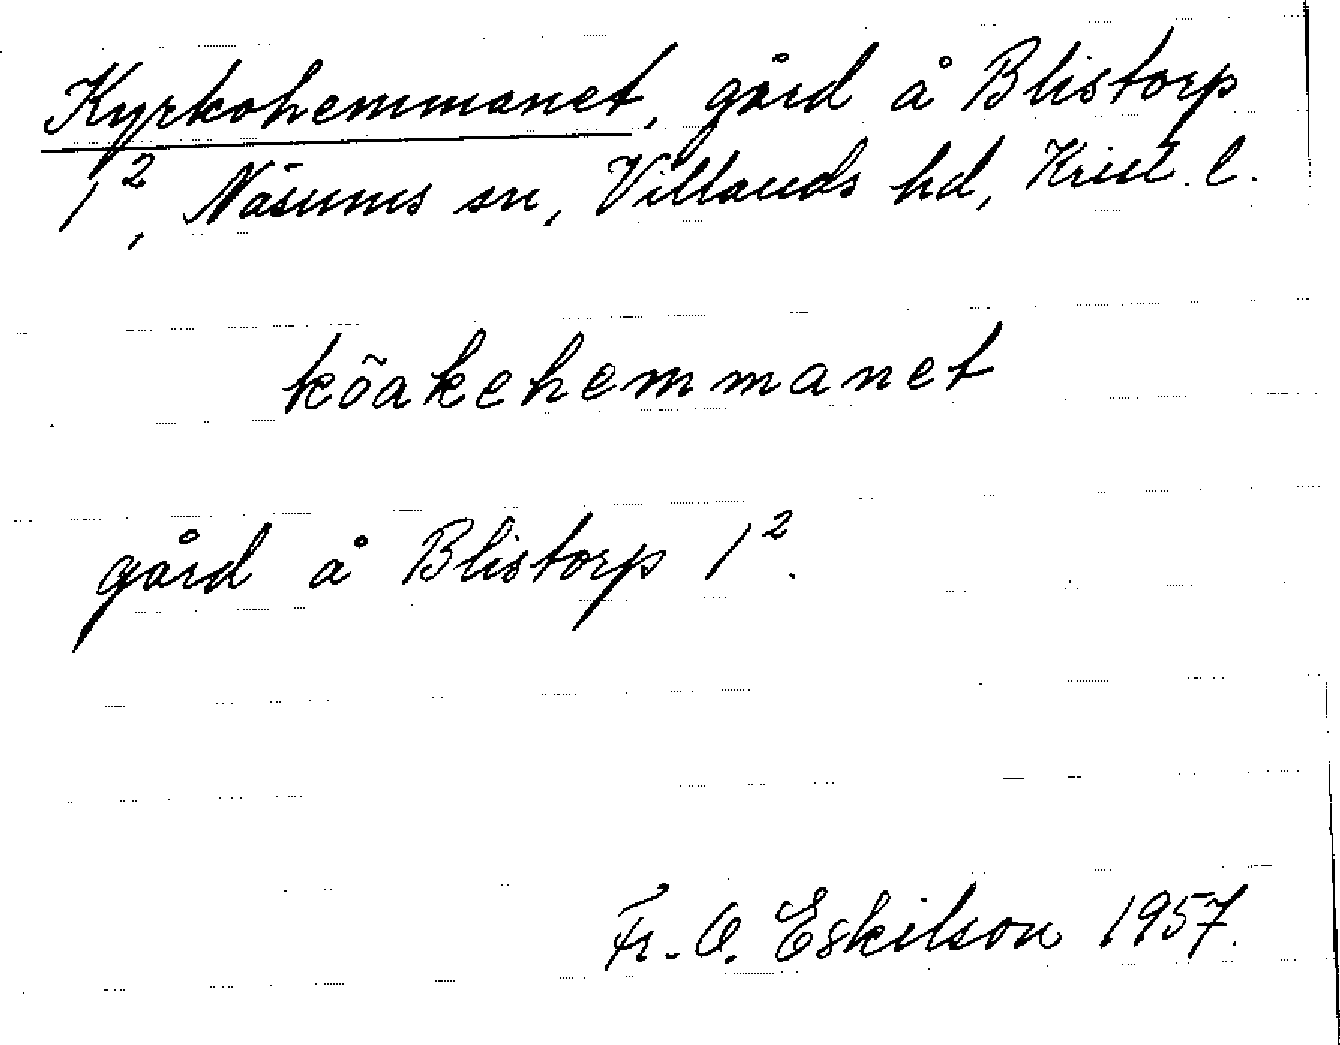 Kyrkohemmanet, gård å Blistorp
1², Näsums sn, Villands hd, Krist. l.
kõakehemmanet
gård å Blistorp 1².
Fr. O. Eskilson 1957.